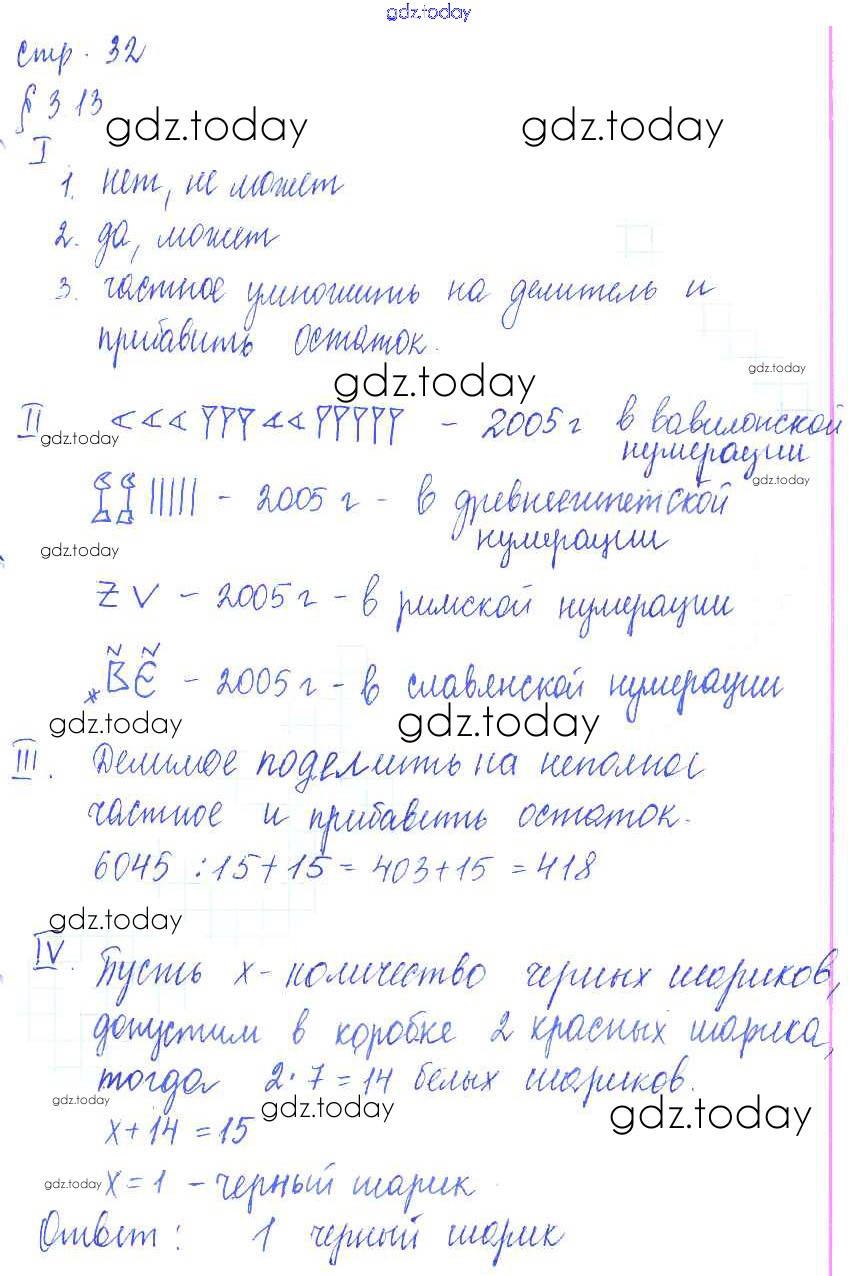 gdz.today
стр. 32
§ 3 13
gdz.today gdz.today
I
1. нет, не может
2. да, может
3. частное умножить на делитель и
прибавить остаток.
gdz.today
gdz.today
II <<< YYY << YYYYY - 2005 г в вавилонской
gdz.today
нумерации
gdz.today
||||| - 2005 г - в древнеегипетской
нумерации
gdz.today
Z V - 2005 г - в римской нумерации
В Є - 2005 г - в славянской нумерации
gdz.today gdz.today
III. Делимое поделить на неполное
частное и прибавить остаток.
6045 : 15 + 15 = 403 + 15 = 418
gdz.today
IV. Пусть х - количество черных шариков,
допустим в коробке 2 красных шарика,
тогда 2 · 7 = 14 белых шариков.
gdz.today gdz.today gdz.today
х + 14 = 15
gdz.today х = 1 - черный шарик
Ответ: 1 черный шарик